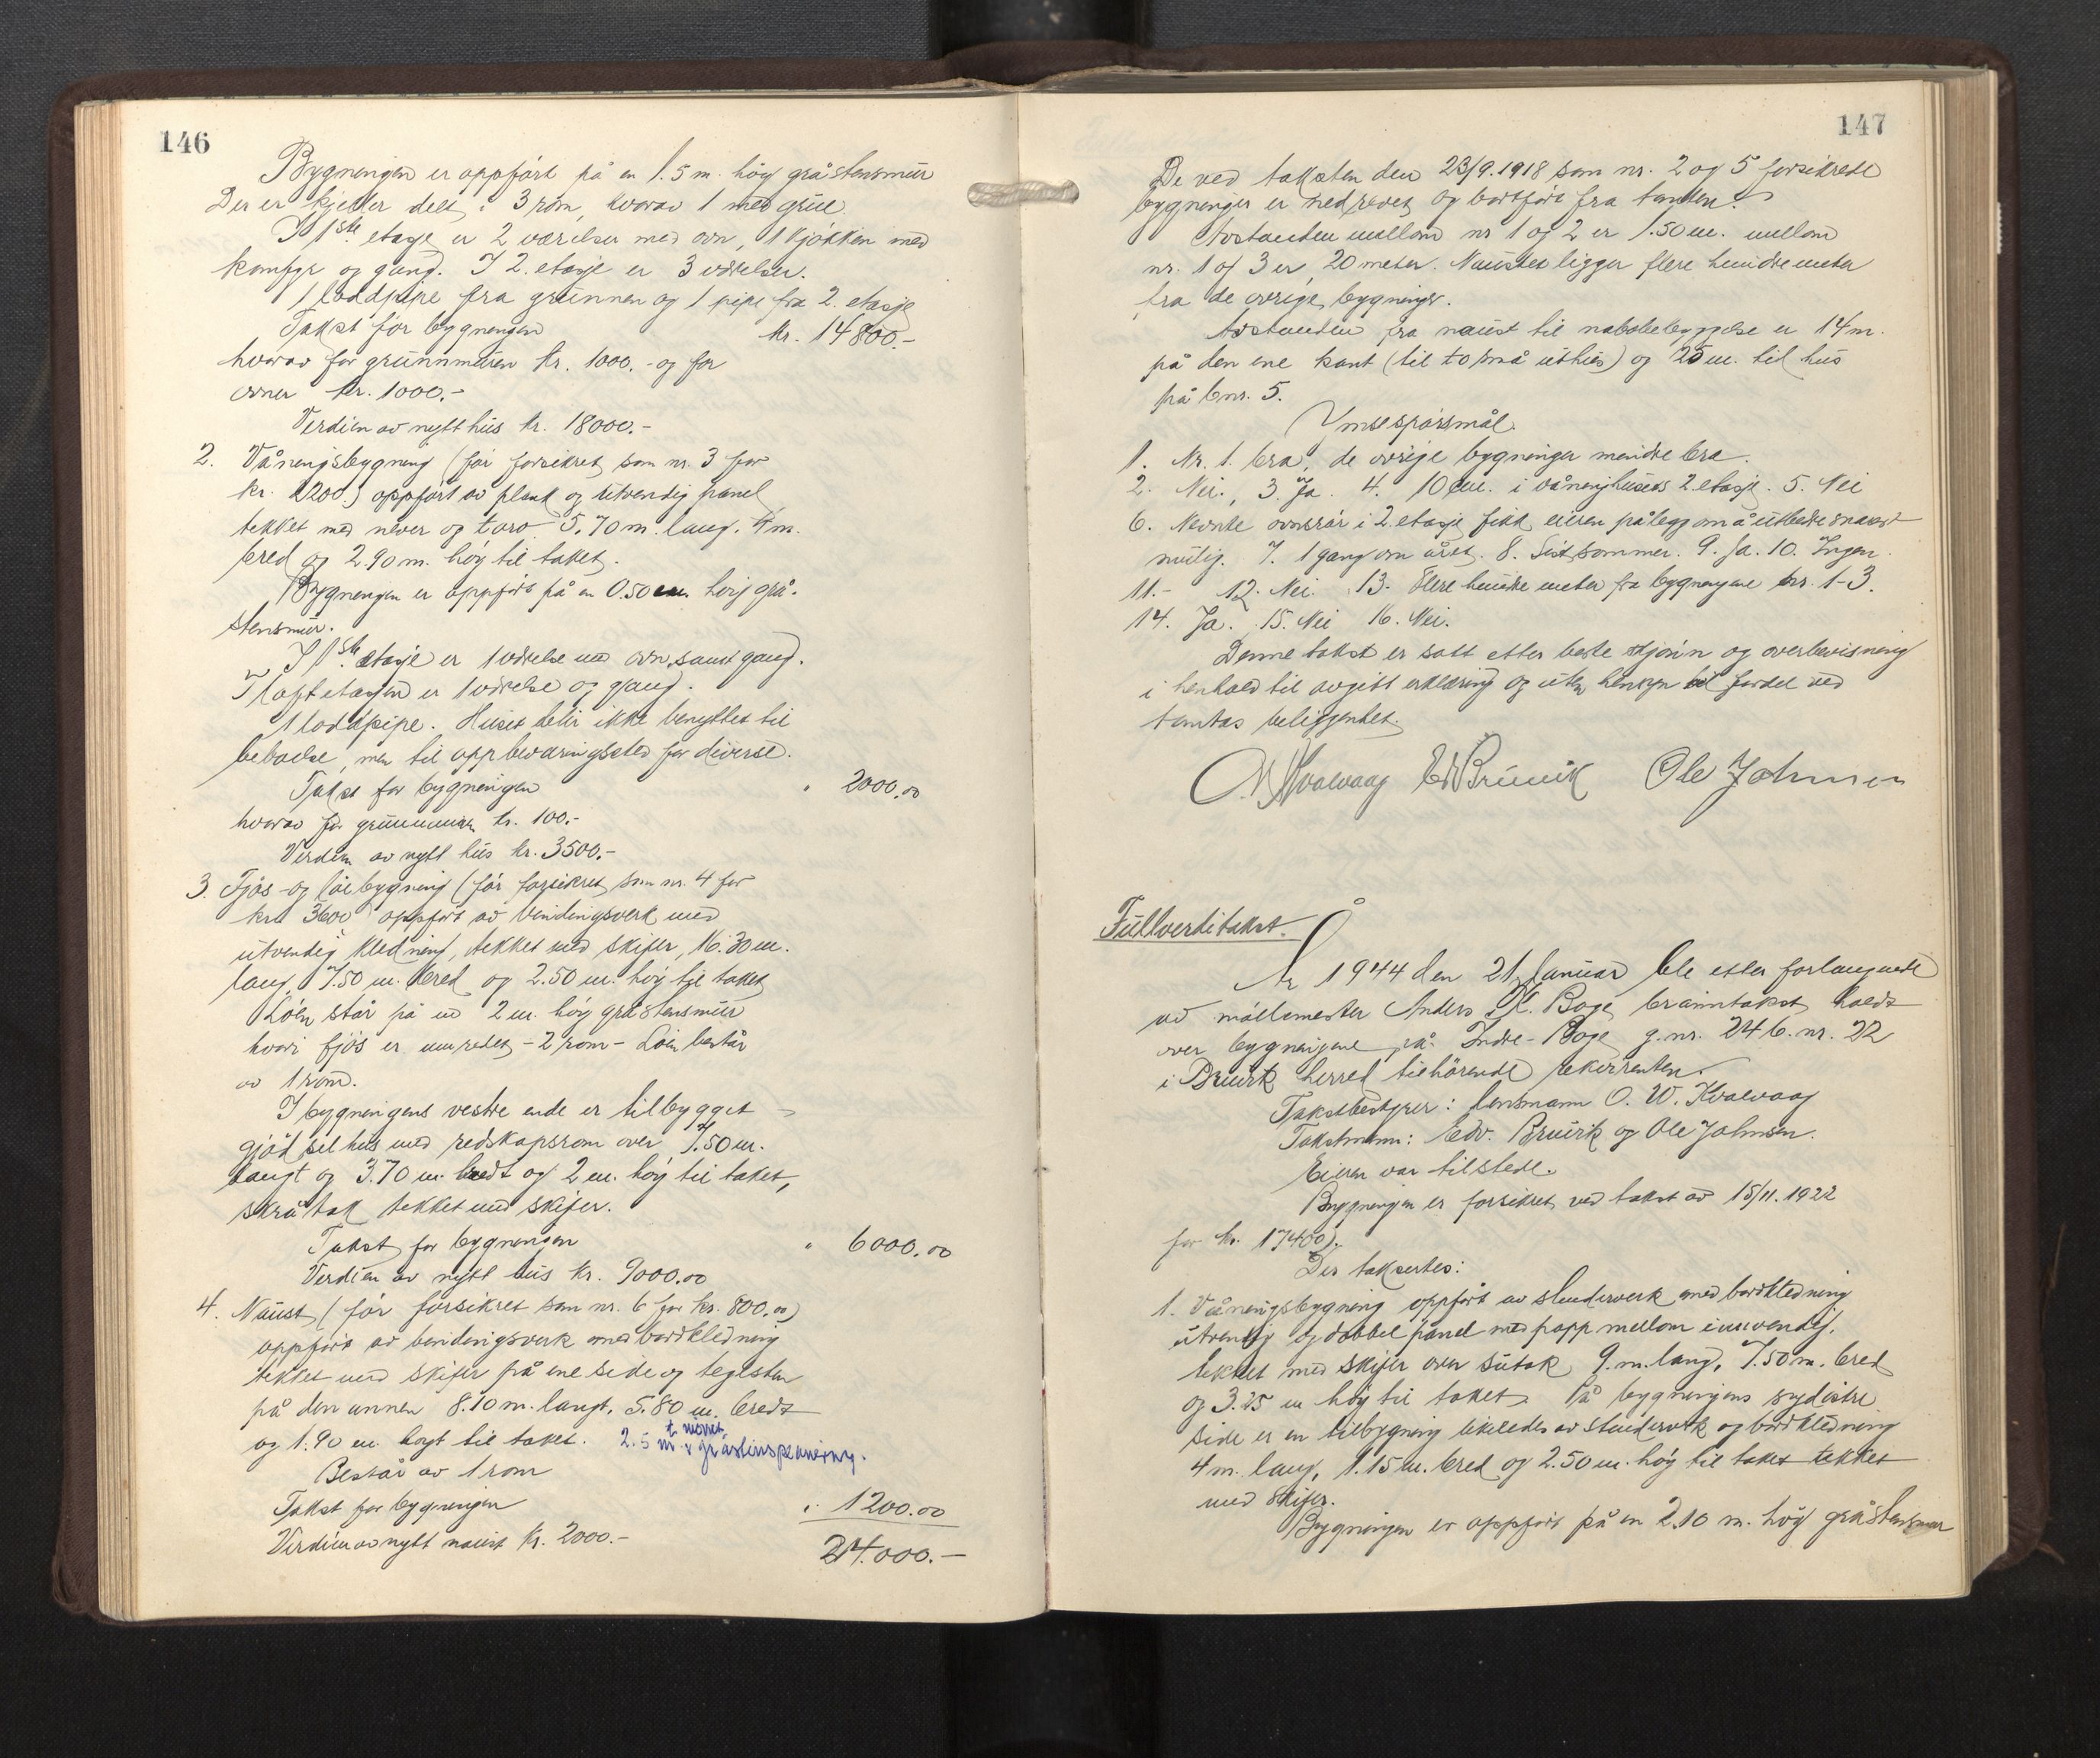 146
Bygningen er oppført på en 1.5 m. høy gråstensmur
Der er kjeller delt i 3 rom, hvorav 1 med grue.
I 1ste etasje er 2 værelser med ovn, 1 kjøkken med
komfyr og gang. I 2. etasje er 3 værelser.
1 loddpipe fra grunnen og 1 pipe fra 2. etasje
Takst for bygningen kr. 14800.-
hvorav for grunnmuren kr. 1000.- og for
ovner kr. 1000.-
Verdien av nytt hus kr. 18000.-
2. Våningsbygning (før forsikret som nr. 3 for
kr. 2200.) oppført av plank og utvendig panel
tekket med never og torv 5.70 m. lang, 4 m.
bred og 2.90 m. høy til taket.
Bygningen er oppført på en 0.50 m høy grå-
stensmur.
I 1ste etasje er 1 værelse med ovn, samt gang.
I loftetasjen er 1 værelse og gang.
1 loddpipe. Huset blir ikke benyttet til
beboelse, men til oppbevaringssted for diverse.
Takst for bygningen " 2000.00
hvorav for grunnmuren kr. 100.-
Verdien av nytt hus kr. 3500.-
3. Fjøs- og løebygning (før forsikret som nr. 4 for
kr. 3600) oppført av bindingsverk med
utvendig kledning, tekket med skifer, 16.30 m.
lang, 7.50 m. bred og 2.50 m. høy til taket
Løen står på en 2 m. høy gråstensmur
hvori fjøs er innredet - 2 rom - Løen består
av 1 rom.
I bygningens vestre ende er tilbygget
gjødselhus med redskapsrom over 7.50 m.
langt og 3.70 m. bredt og 2 m. høy til taket,
skråtak tekket med skifer.
Takst for bygningen " 6000.00
Verdien av nytt hus kr. 9000.00
4. Naust (før forsikret som nr. 6 for kr. 800.00)
oppført av bindingsverk med bordkledning
tekket med skifer på ene side og teglsten
på den annen 8.10 m. langt, 5.80 m. bredt
og 1.90 m. høyt til taket. 2.5 m.
Består av 1 rom
Takst for bygningen " 1200.00
Verdien av nytt naust kr. 2000.- 24.000.-
147
De ved taksten den 23/9.1918 som nr. 2 og 5 forsikrede
bygninger er nedrevet og bortført fra tomten.
Avstanden mellom nr 1 og 2 er 1.50 m. mellom
nr. 1 og 3 er 20 meter. Naustet ligger flere hundre meter
fra de øvrige bygninger.
Avstanden fra naust til nabobebyggelse er 14 m.
på den ene kant (til to små uthus) og 25 m. til hus
på bnr. 5.
Ymse spørsmål.
1. Nr. 1. bra, de øvrige bygninger mindre bra.
2. Nei. 3. Ja. 4. 10 cm. i våningshusets 2. etasje. 5. Nei
6. Nevnte ovnsrør i 2. etasje fikk eieren pålegg om å utbedre snarest
mulig. 7. 1 gang om året. 8. Sist sommer. 9. Ja. 10. Ingen
11. - 12. Nei. 13. Flere hundre meter fra bygningene nr. 1-3.
14. Ja. 15. Nei 16. Nei.
Denne takst er satt etter beste skjønn og overbevisning
i henhold til avgitt erklæring og uten hensyn til fordel ved
tomtas beliggenhet.
O. W. Kvalvaag Edv Bruvik Ole Johnsen
Fullverditakst.
År 1944 den 21. januar ble etter forlangende
av møllemester Anders K. Boge branntakst holdt
over bygningene på Indre-Boge g.nr. 24 b.nr. 22
i Bruvik herred tilhørende rekvirenten.
Takstbestyrer: lensmann O. W. Kvalvaag
Takstmenn: Edv. Bruvik og Ole Johnsen.
Eieren var tilstede.
Bygningen er forsikret ved takst av 15/11. 1922
for kr. 17400).
Der takseres:
1. Våningsbygning oppført av stenderverk med bordkledning
utvendig og dobbel panel med papp mellom innvendig,
tekket med skifer over sutak, 9. m. lang, 7.50 m. bred
og 3.25 m høy til taket. På bygningens sydøstre
side er en tilbygning likeledes av stenderverk og bordkledning
4 m. lang, 1.15 m. bred og 2.50 m. høy til taket tekket
med skifer.
Bygningen er oppført på en 2.10 m. høy gråstensmur